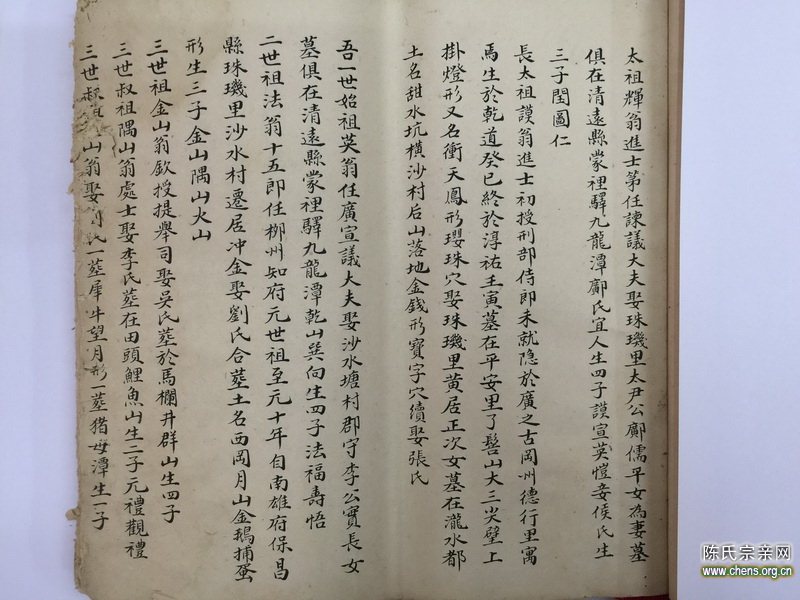 太祖輝翁進士第任諫議大夫娶珠璣里太尹公鄺儒平女為妻墓
俱在清遠縣蒙裡驛九龍潭鄺氏宜人生四子謨宣英愷妾侯氏生
三子閏圖仁
長太祖謨翁進士初授刑部侍郎未就隐於廣之古岡州德行里寓
馬生於乾道癸巳終於淳祐王寅墓在平安里了髻山大三尖壁上
掛燈形又名衝天鳳形璎珠穴娶珠璣里黄居正次女墓在瀧水都
土名甜水坑橫沙村后山落地金錢形寶字穴續娶張氏
吾一世始祖英翁任廣宣議大夫娶沙水塘村郡守李公實長女
墓俱在清遠縣蒙裡驛九龍潭乾山巽向生四子法福壽悟
二世祖法翁十五郎任柳州知府元世祖至元十年自南雄府保昌
縣珠璣里沙水村遷居冲金娶劉氏合葬土名西岡月山金鵝捕蛋
形生三子金山隅山火山
三世祖金山翁欽授提舉司娶吳氏葬於馬欄井群山生四子
三世叔祖隅山翁處士娶李氏墓在田頭鯉魚山生二子元禮觀禮
三世叔山翁娶氏一葬犀牛望月形一葬猪母潭生一子
陈氏宗亲网
www.chens.org.cn